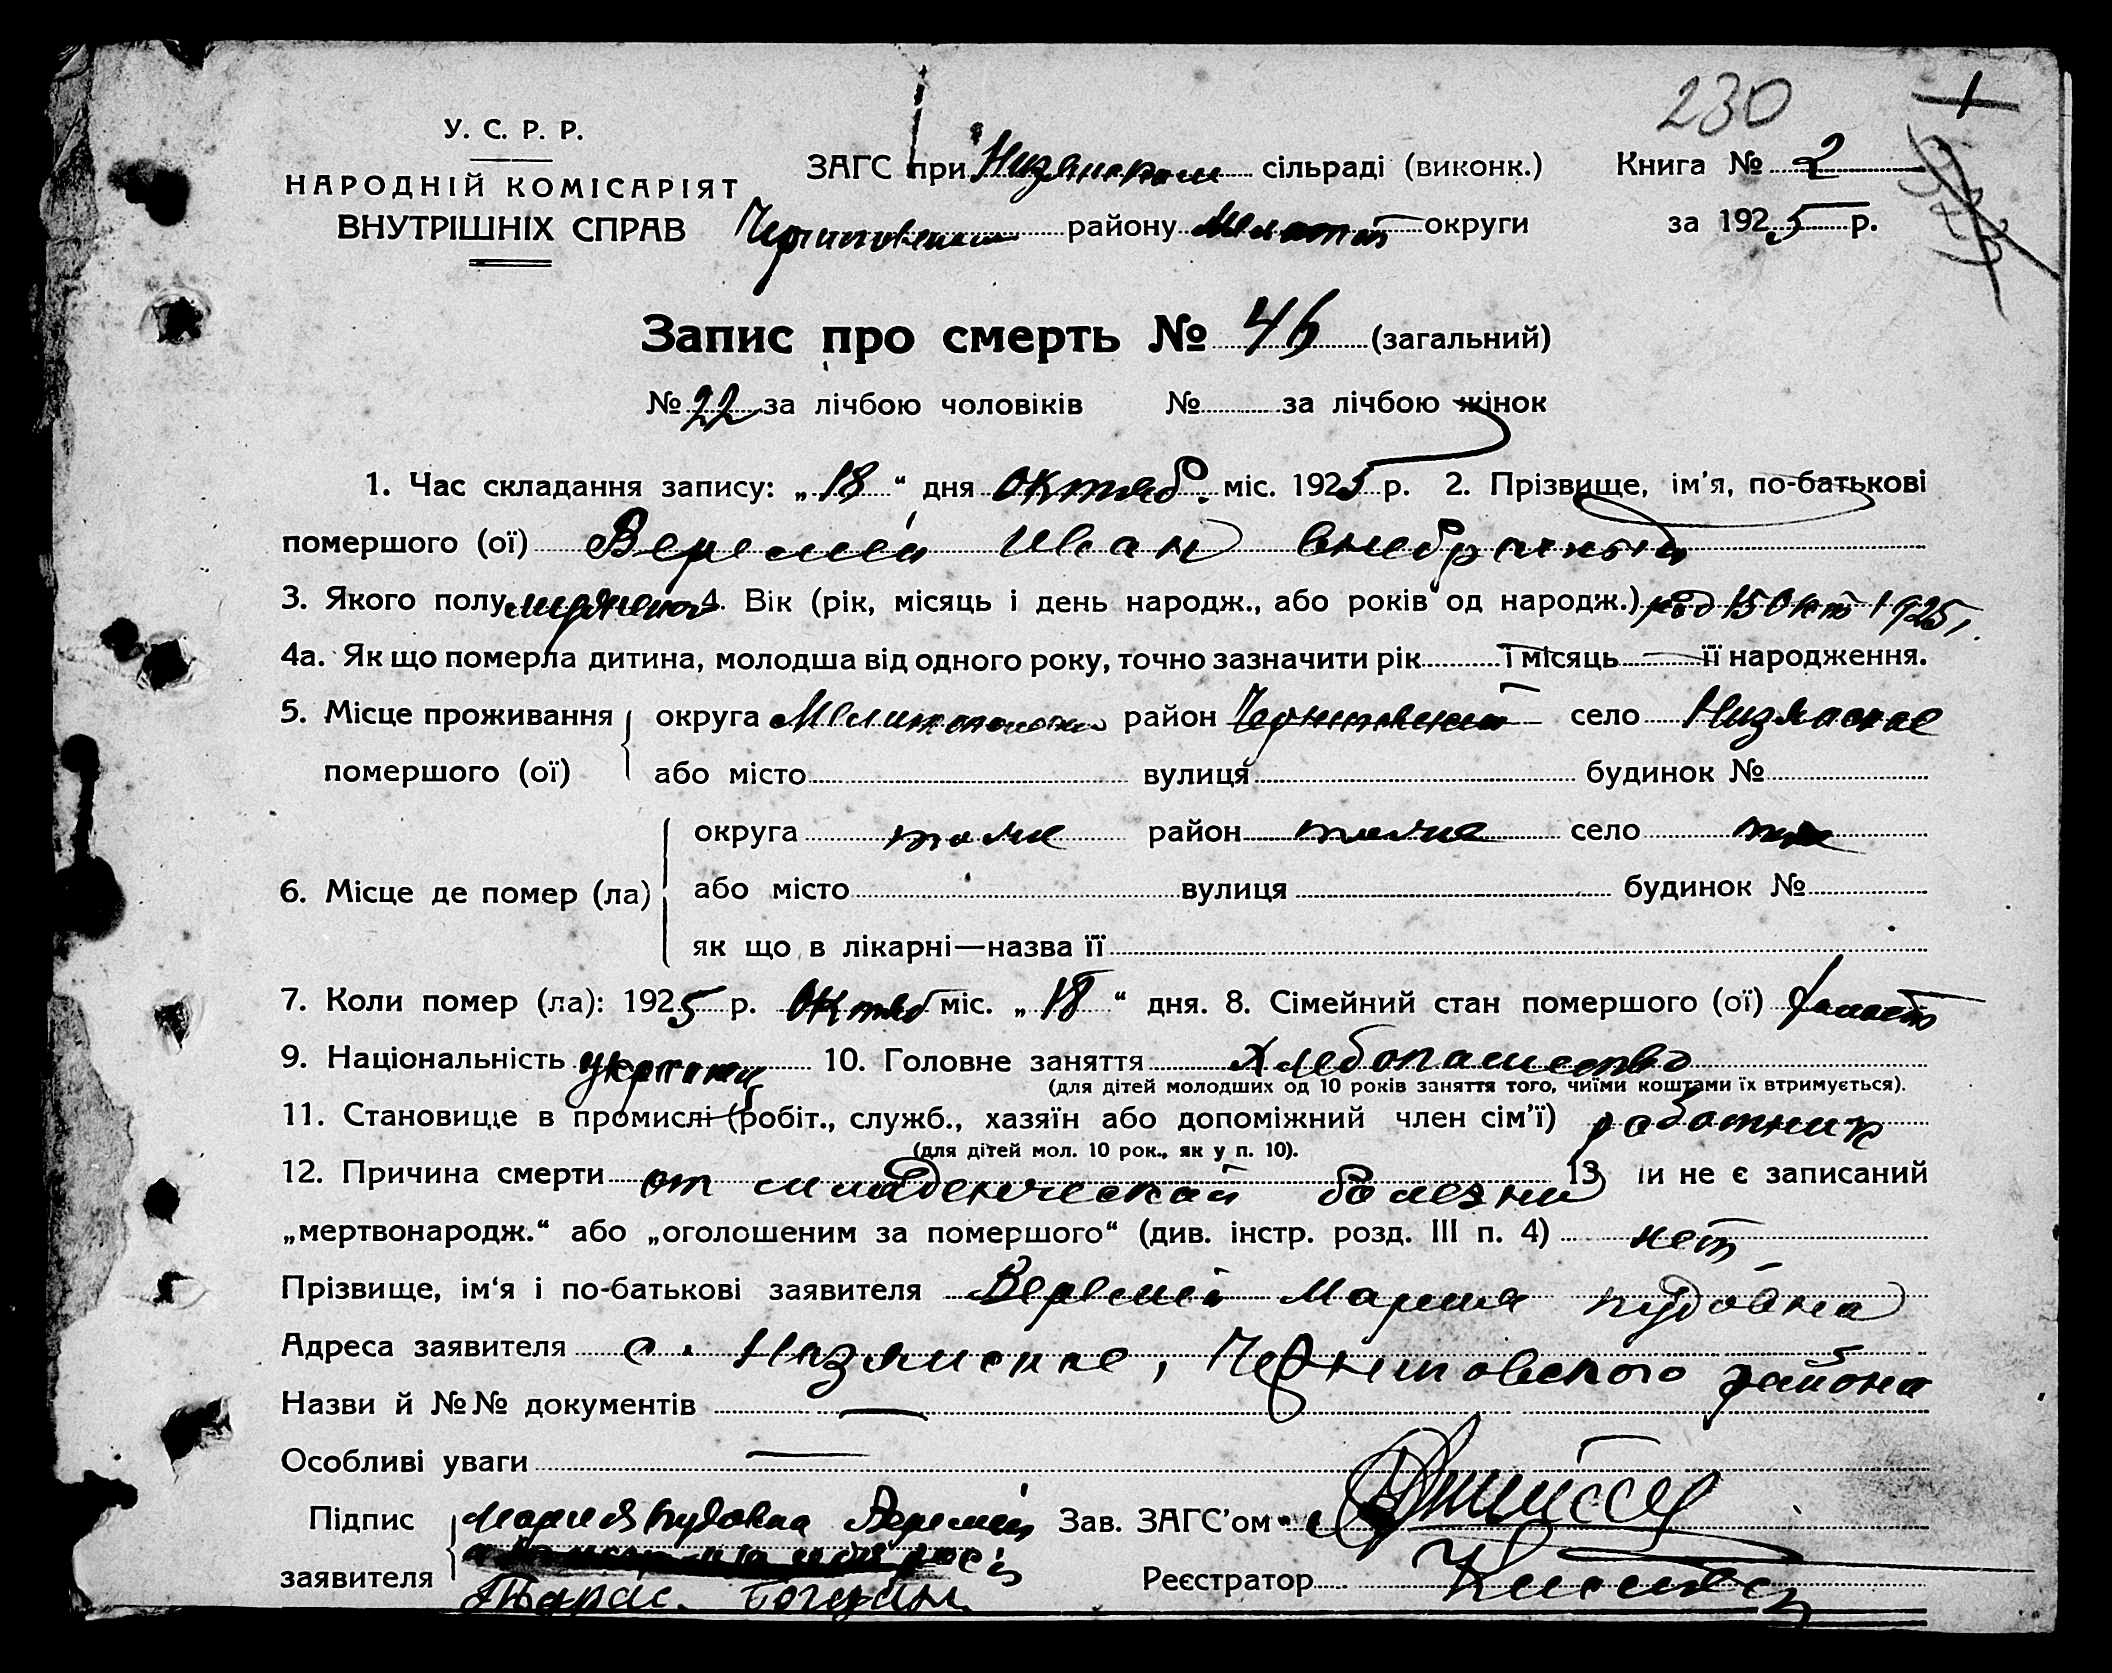 230
У. С. Р. Р.
НАРОДНІЙ КОМІСАРІЯТ
ВНУТРІШНІХ СПРАВ
ЗАГС при Низянском сільраді (виконк.) Книга № 2
Черниговском району Мелит округи за 1925 р.
Запис про смерть № 46 (загальний)
№ 22 за лічбою чоловіків № за лічбою жінок
1. Час складання запису: „18“ дня октяб. міс. 1925 р. 2. Прізвище, ім'я, по-батькові
помершого (ої) Веремей Иван внебрачный
3. Якого полу 4. Вік (рік, місяць і день народж., або років од народж.) род 15 окт 1925 г.
4а. Як що померла дитина, молодша від одного року, точно зазначити рік і місяць її народження.
5. Місце проживання округа район Черниговский село Низянское
помершого (ої) або місто вулиця будинок №
округа тоже район тоже село тоже
6. Місце де помер (ла) або місто вулиця будинок №
як що в лікарні—назва її
7. Коли помер (ла): 1925 р. Октяб міс. „18“ дня. 8. Сімейний стан помершого (ої) холост
9. Національність украинец 10. Головне заняття Хлебопашество
(для дітей молодших од 10 років заняття того, чиїми коштами їх втримується).
11. Становище в промислі (робіт., служб., хазяїн або допоміжний член сім'ї) работник
(для дітей мол. 10 рок., як у п. 10).
12. Причина смерти от младенческой болезни 13 и не є записаний
„мертвонародж.“ або „оголошеним за помершого“ (див. інстр. розд. III п. 4) нет
Прізвище, ім'я і по-батькові заявителя Веремей Мария Пудовна
Адреса заявителя с. Низянское, Черниговского района
Назви й №№ документів —
Особливі уваги —
Підпис Мария Пудовна Веремей Зав. ЗАГС'ом
заявителя Реєстратор
Тарас